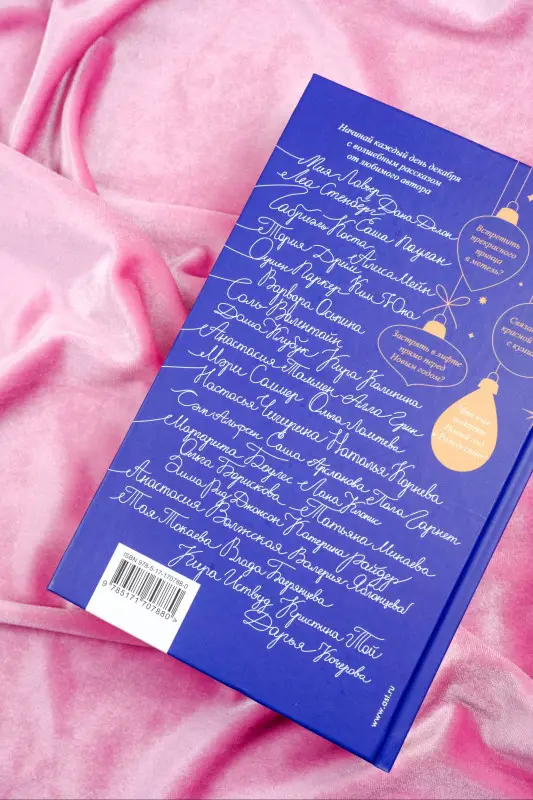 Начинай каждый день декабря
с волшебным рассказом
от любимого автора
Мия Лавьер Дана Делон
Леа Стенберг Саша Паулан
Габриэль Коста Алиса Мейн
Тория Дрим Ким Юна
Оушен Паркер
Варвара Оськина
Соль Валентайн
Даша Коубук Кира Калинина
Анастасия Таммен Алла Грин
Мари Соммер Ольга Ламтева
Настасья Чешерина Наталья Корнева
Сэм Альфсен Саша Арсланова Пола Гарнет
Маргерита Боулес Лана Клонис
Ольга Борискова Татьяна Минаева
Эмма Рид Джонсон Катерина Райдер
Анастасия Волжская Валерия Яблонцева
Тая Токаева Влада Багрянцева
Кира Иствуд Кристина Той
Дарья Кочерова
Встретить
прекрасного
принца
в метель?
Связа
красной
с куми
Застрять в лифте
прямо перед
Новым годом?
Новый год
и Рождество?
ISBN 978-5-17-170788-0
9 785171 707880 >
www.ast.ru